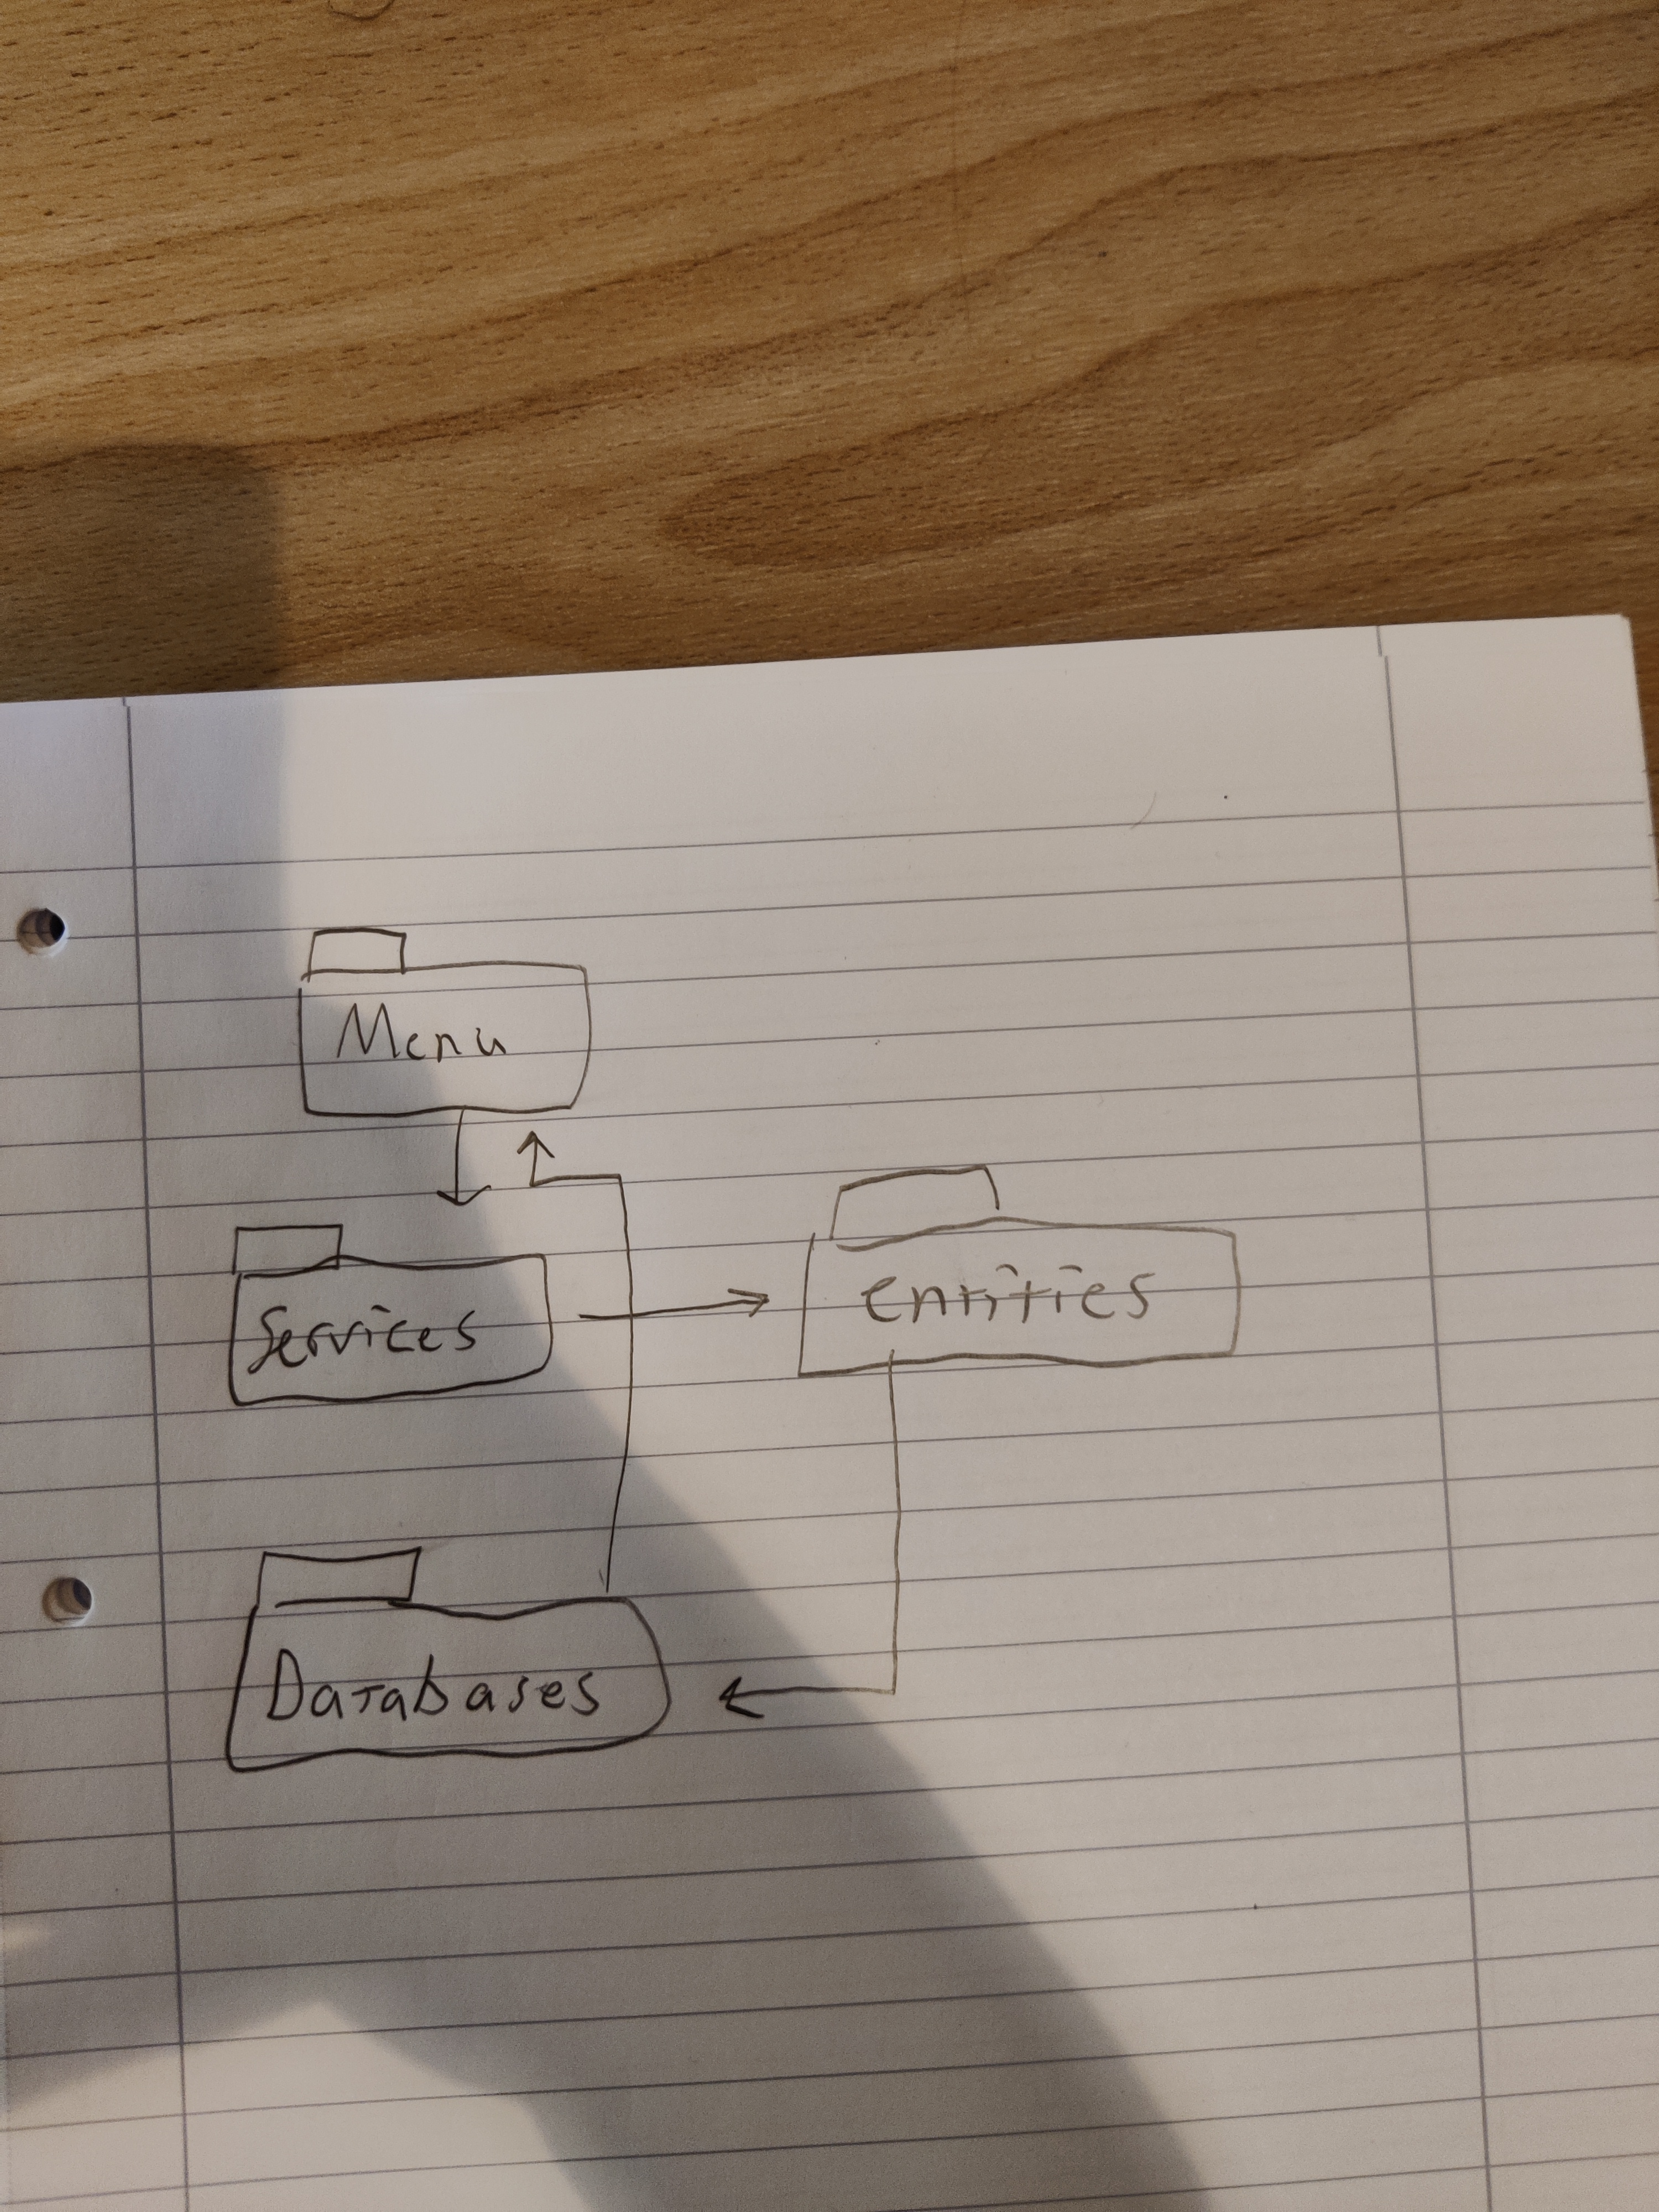 Menu
Services
entities
Databases